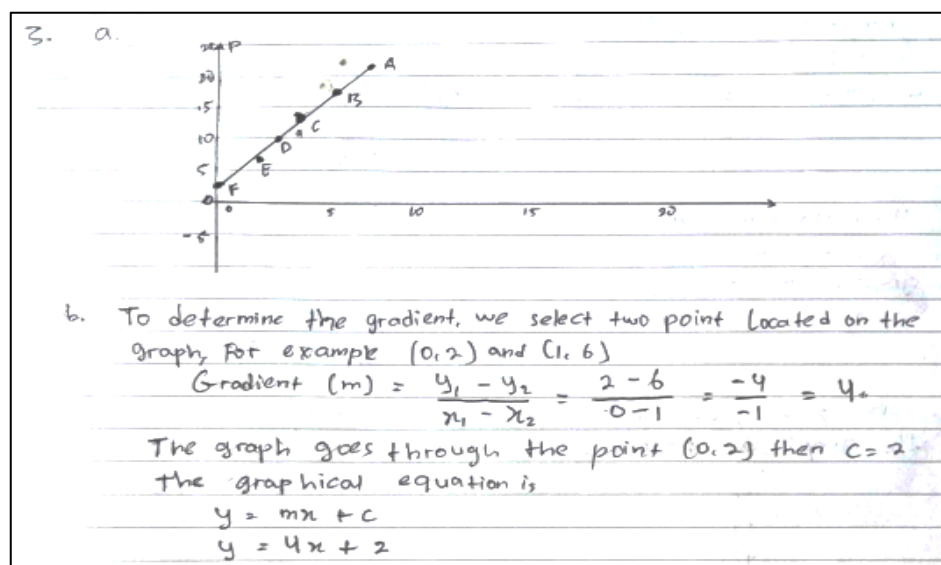 3. a.
P
A
20
B
15
C
10
D
5
E
F
0
0 5 10 15 20
-5
b. To determine the gradient, we select two point located on the
graph, For example (0,2) and (1,6)
Gradient (m) = y₁ - y₂ / x₁ - x₂ = 2 - 6 / 0 - 1 = -4 / -1 = 4.
The graph goes through the point (0,2) then c = 2
the graphical equation is
y = mx + c
y = 4x + 2